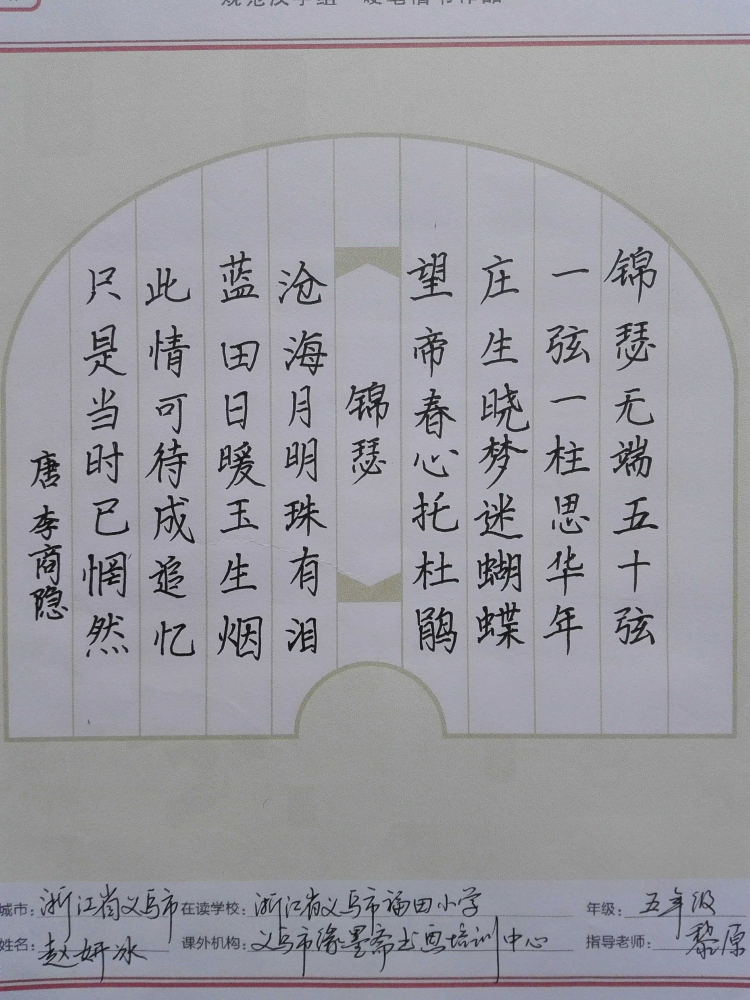 锦瑟无端五十弦
一弦一柱思华年
庄生晓梦迷蝴蝶
望帝春心托杜鹃
锦瑟
沧海月明珠有泪
蓝田日暖玉生烟
此情可待成追忆
只是当时已惘然
唐 李商隐
城市：浙江省义乌市 在读学校：浙江省义乌市福田小学 年级：五年级
姓名：赵妍冰 课外机构：义乌市缘墨斋书画培训中心 指导老师：黎原